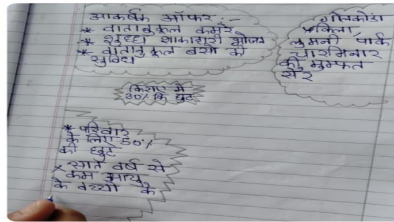 आकर्षक ऑफर :-
* वातानुकूल कमरे
* शुध्ध शाकाहारी भोजन
* वातानुकूल बसो की
सुविधा
गोलकोंडा
किला
लुम्बनी पार्क
चारमिनार
की मुफ्फत
सैर
किराए में
30% कि छूट
* परिवार
के लिए 50%
की छूट
* सात वर्ष से
कम आयु
के बच्चों के